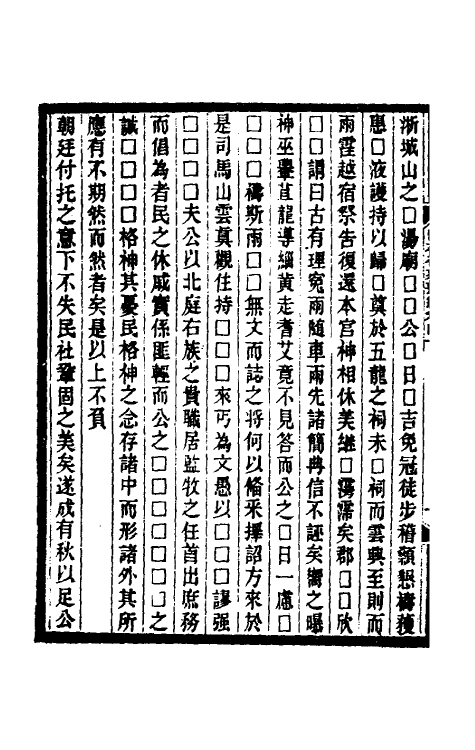 浙城山之□湯廟□□公□日□吉免冠徒步稽顙懇禱穫
惠□液護持以歸□奠於五龍之祠未□祠而雲興至則而
雨霔越宿祭告復還本宮神相休美繼□霶霈矣郡□□欣
□□謂曰古有理寃雨隨車雨先諸簡冊信不誣矣嚮之曝
神巫舉苴龍導緇黃走耆艾竟不見答而公之□日一慮□
□□□禱斯雨□□無文而誌之將何以脩釆擇詔方來於
是司馬山雲真觀住持□□□□來丐為文愚以□□□謬强
□□□□夫公以北庭右族之貴職居監牧之任首出庶務
而倡為者民之休戚實係匪輕而公之□□□□□□□□之
誠□□□□格神其憂民格神之念存諸中而形諸外其所
應有不期然而然者矣是以上不負
朝廷付托之意下不失民社鞏固之美矣遂成有秋以足公